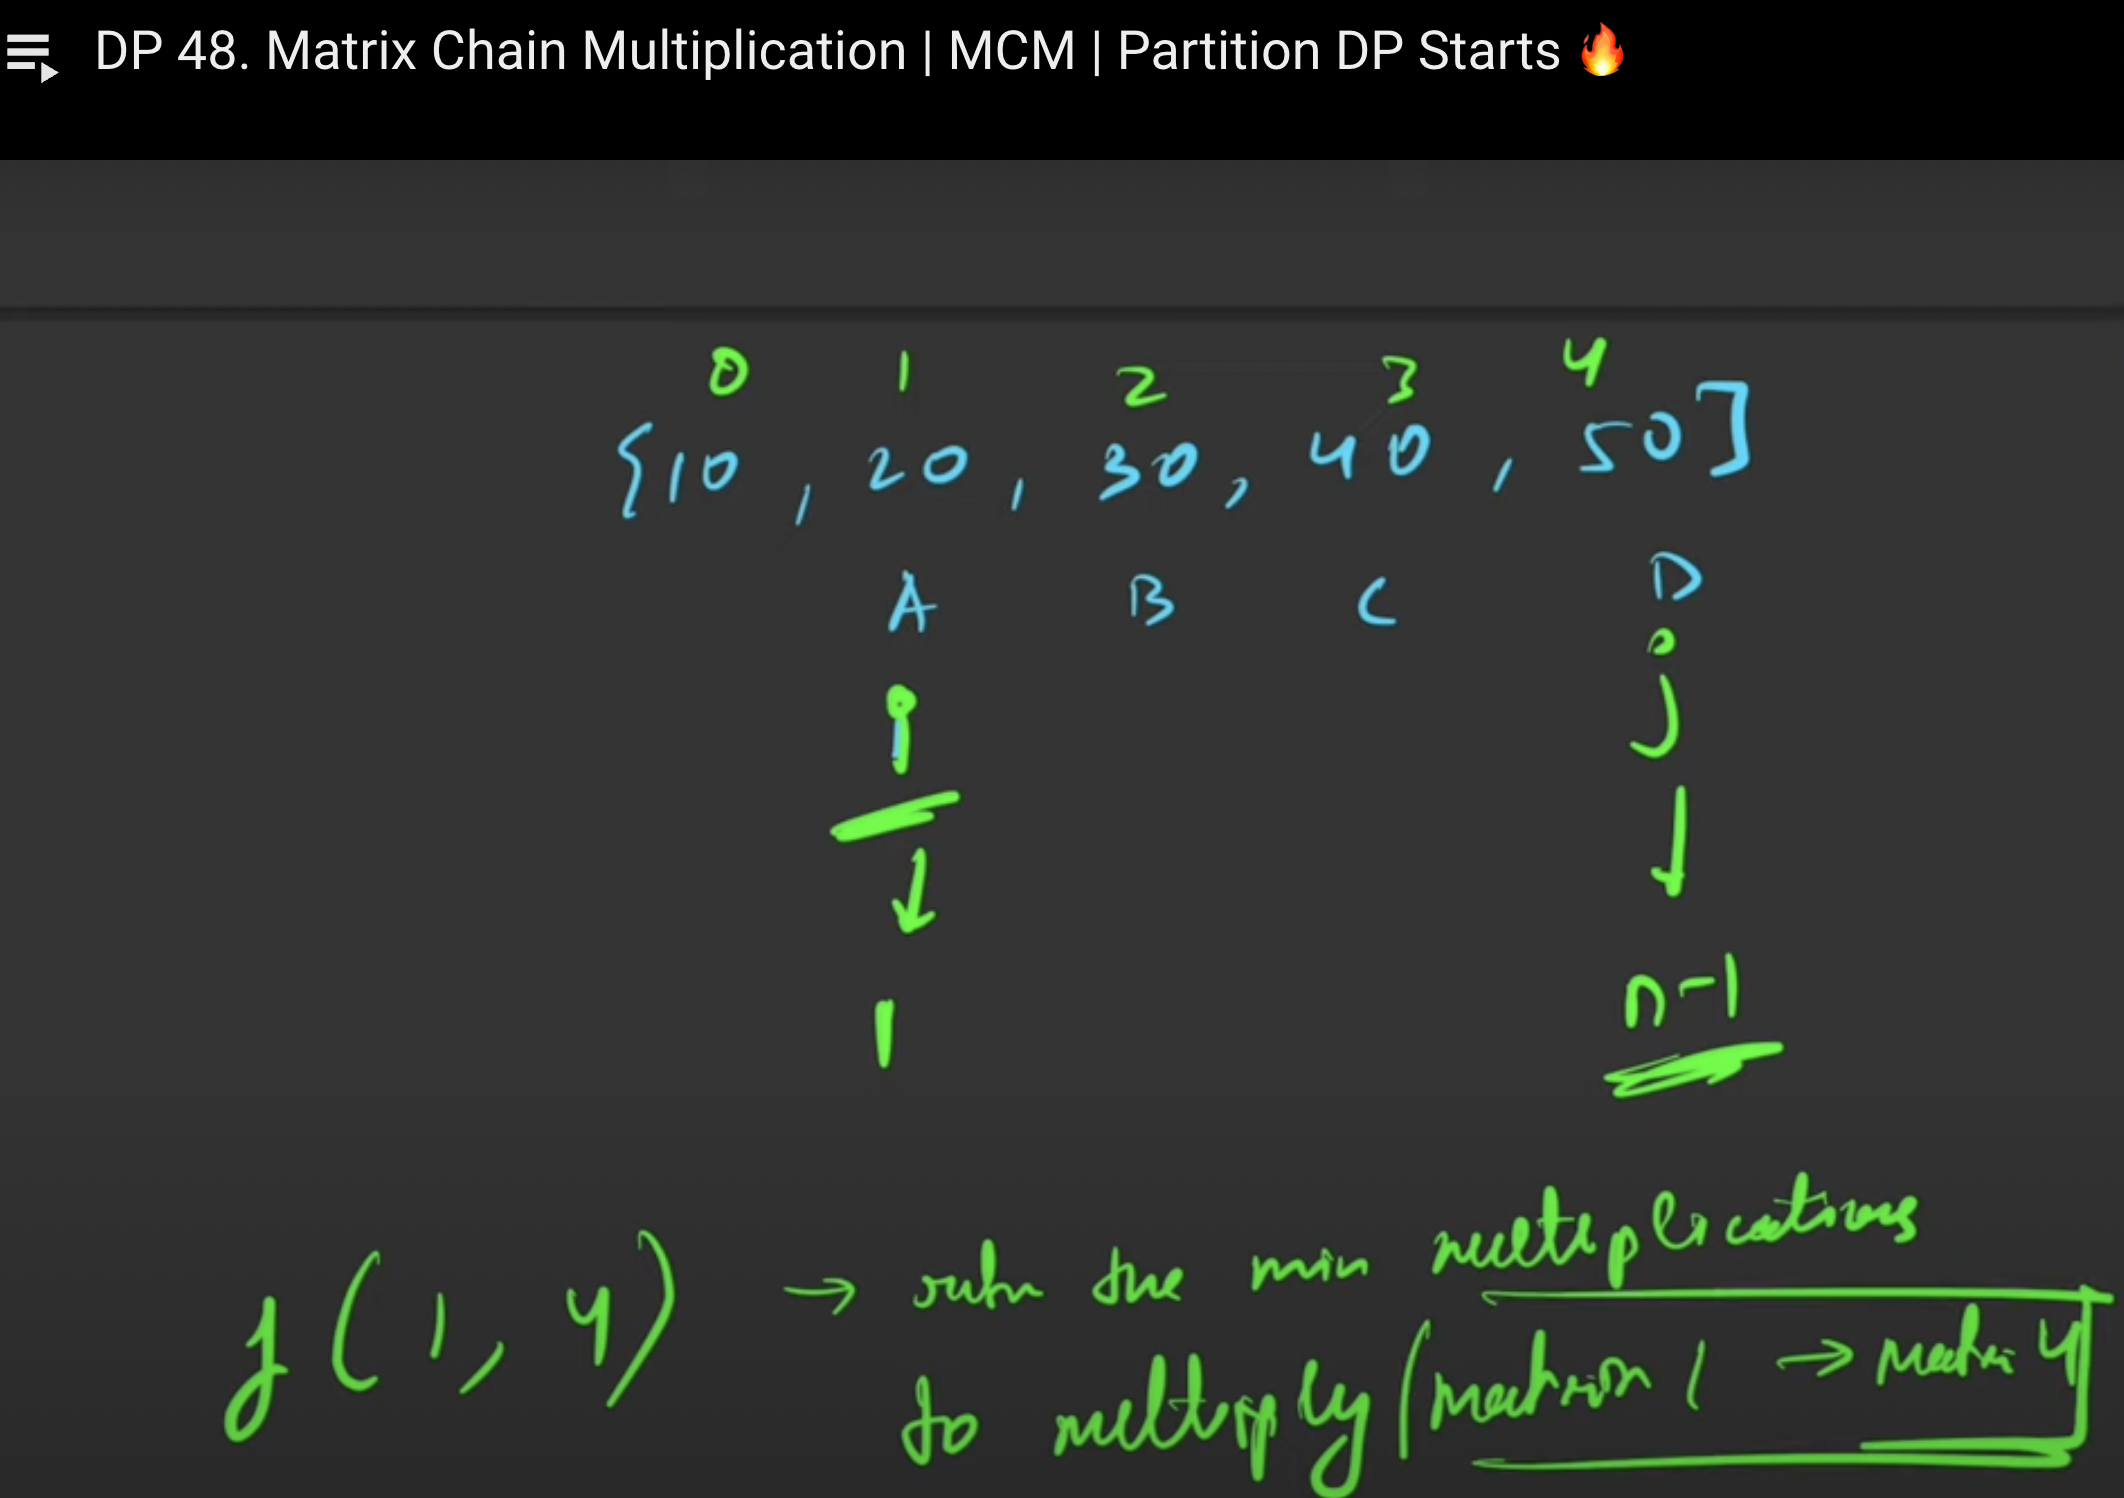 DP 48. Matrix Chain Multiplication | MCM | Partition DP Starts 🔥
0 1 2 3 4
{10, 20, 30, 40, 50]
A B C D
i j
1 n-1
f(1, 4) → return the min multiplications
to multiply (matrix 1 → matrix 4]